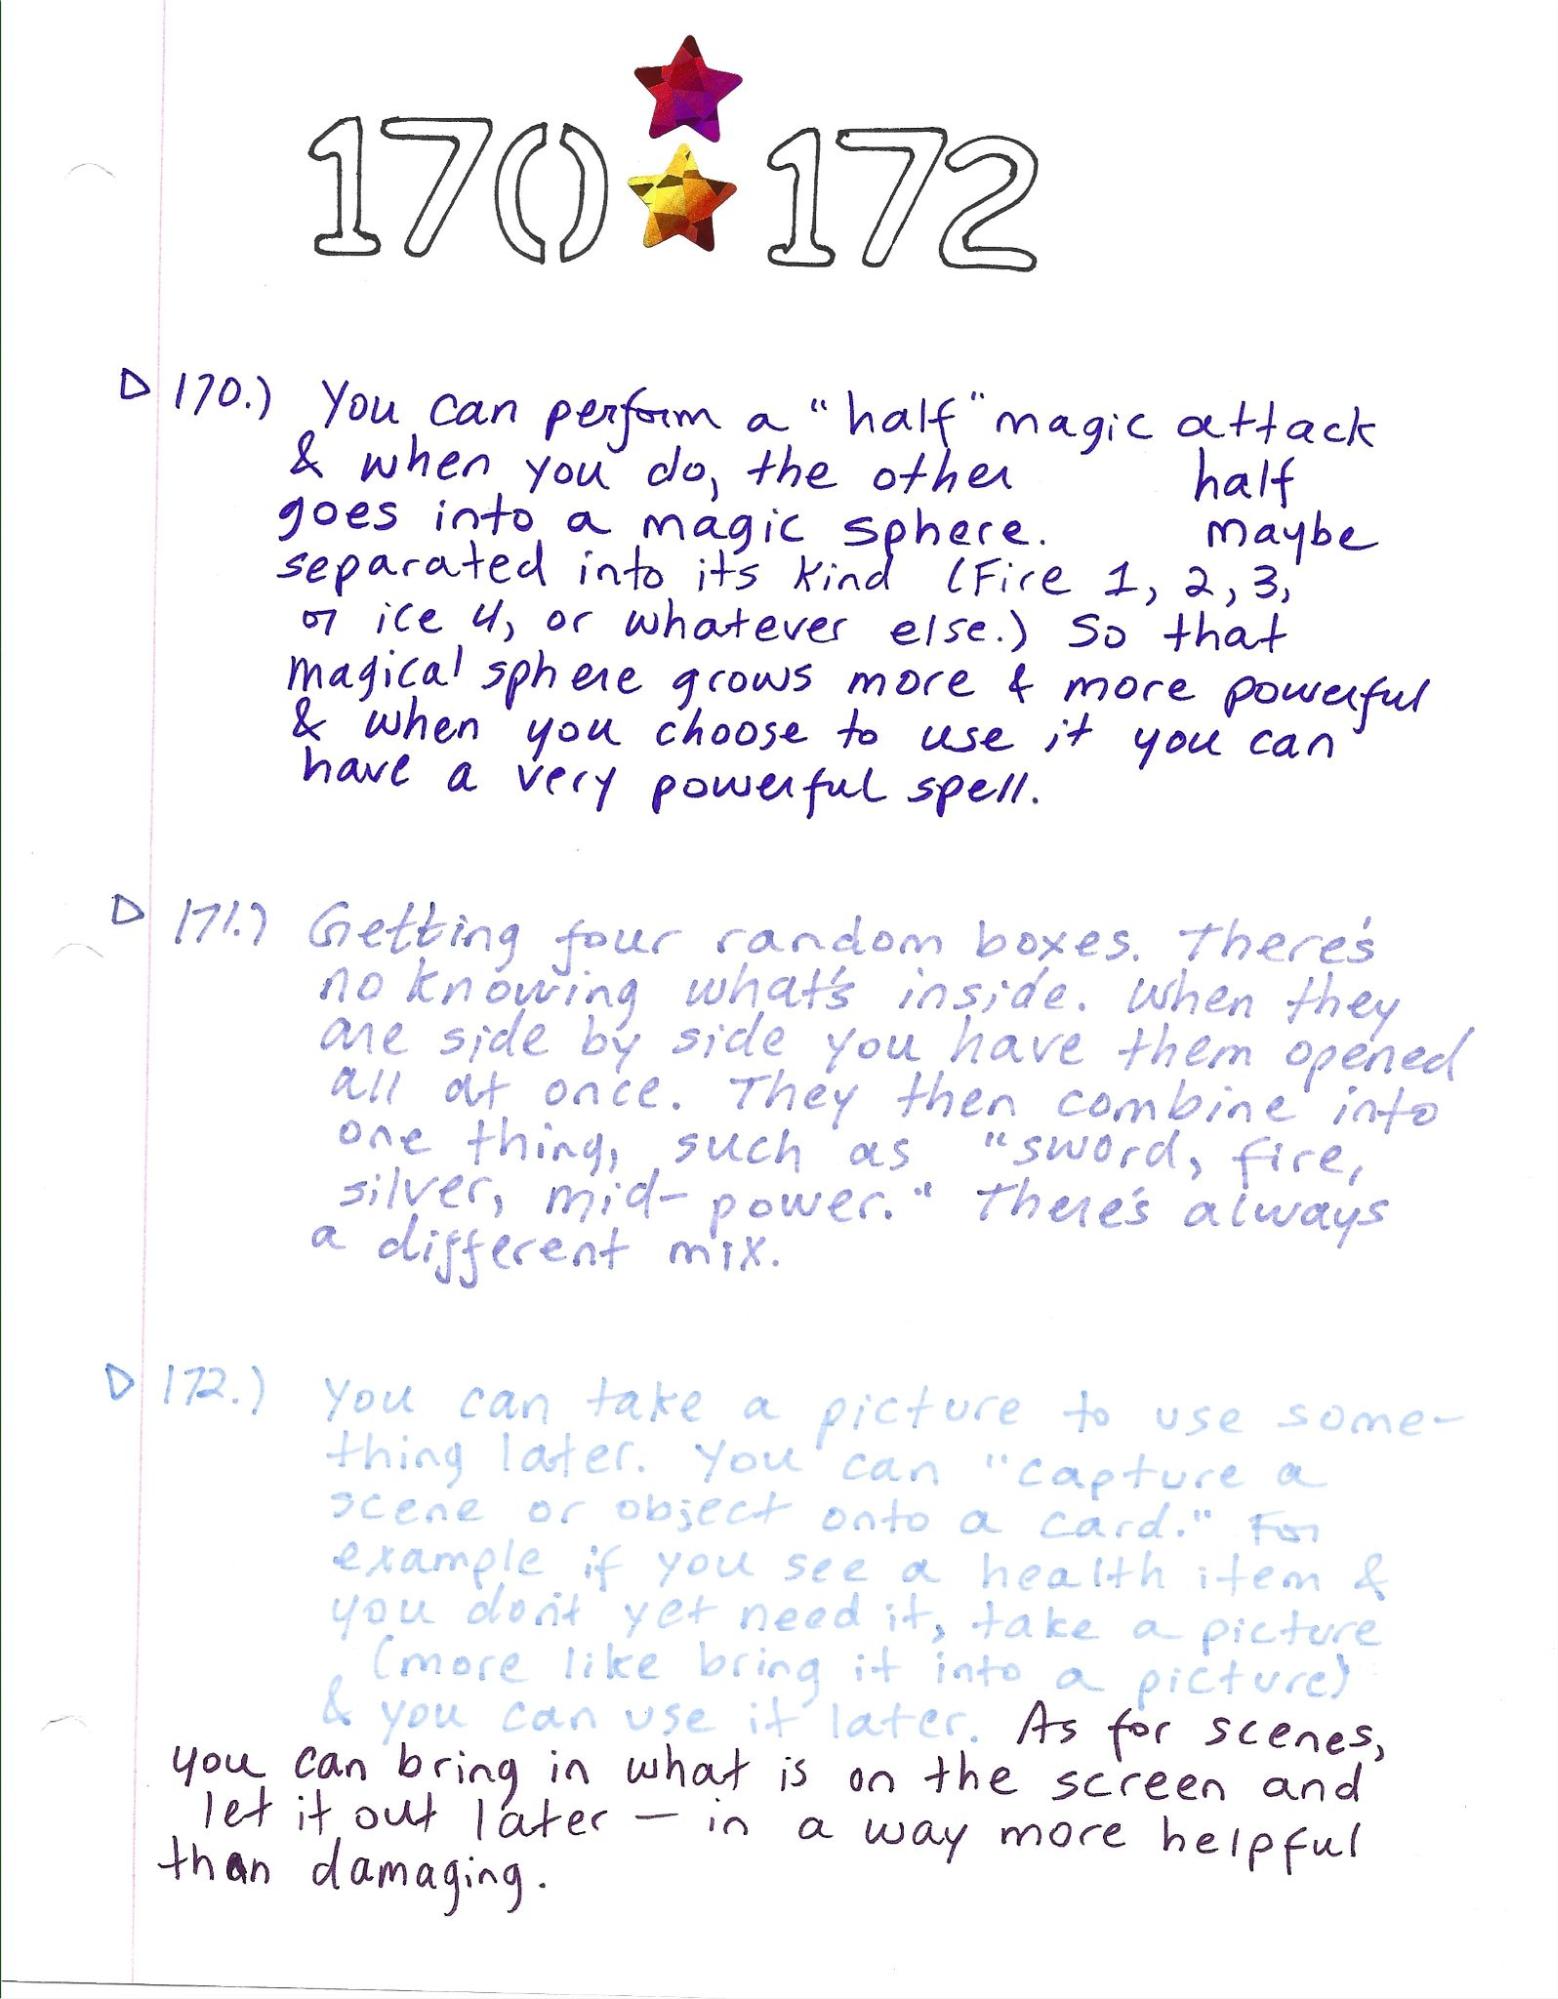 170 172
▷ 170.) You can perform a "half" magic attack
& when you do, the other half
goes into a magic sphere. maybe
separated into its kind (Fire 1, 2, 3,
or ice 4, or whatever else.) So that
magical sphere grows more & more powerful
& when you choose to use it you can
have a very powerful spell.
▷ 171.) Getting four random boxes. There's
no knowing what's inside. When they
are side by side you have them opened
all at once. They then combine into
one thing, such as "sword, fire,
silver, mid-power." There's always
a different mix.
▷ 172.) You can take a picture to use some-
thing later. You can "capture a
scene or object onto a card." For
example if you see a health item &
you don't yet need it, take a picture
(more like bring it into a picture)
& you can use it later. As for scenes,
you can bring in what is on the screen and
let it out later — in a way more helpful
than damaging.